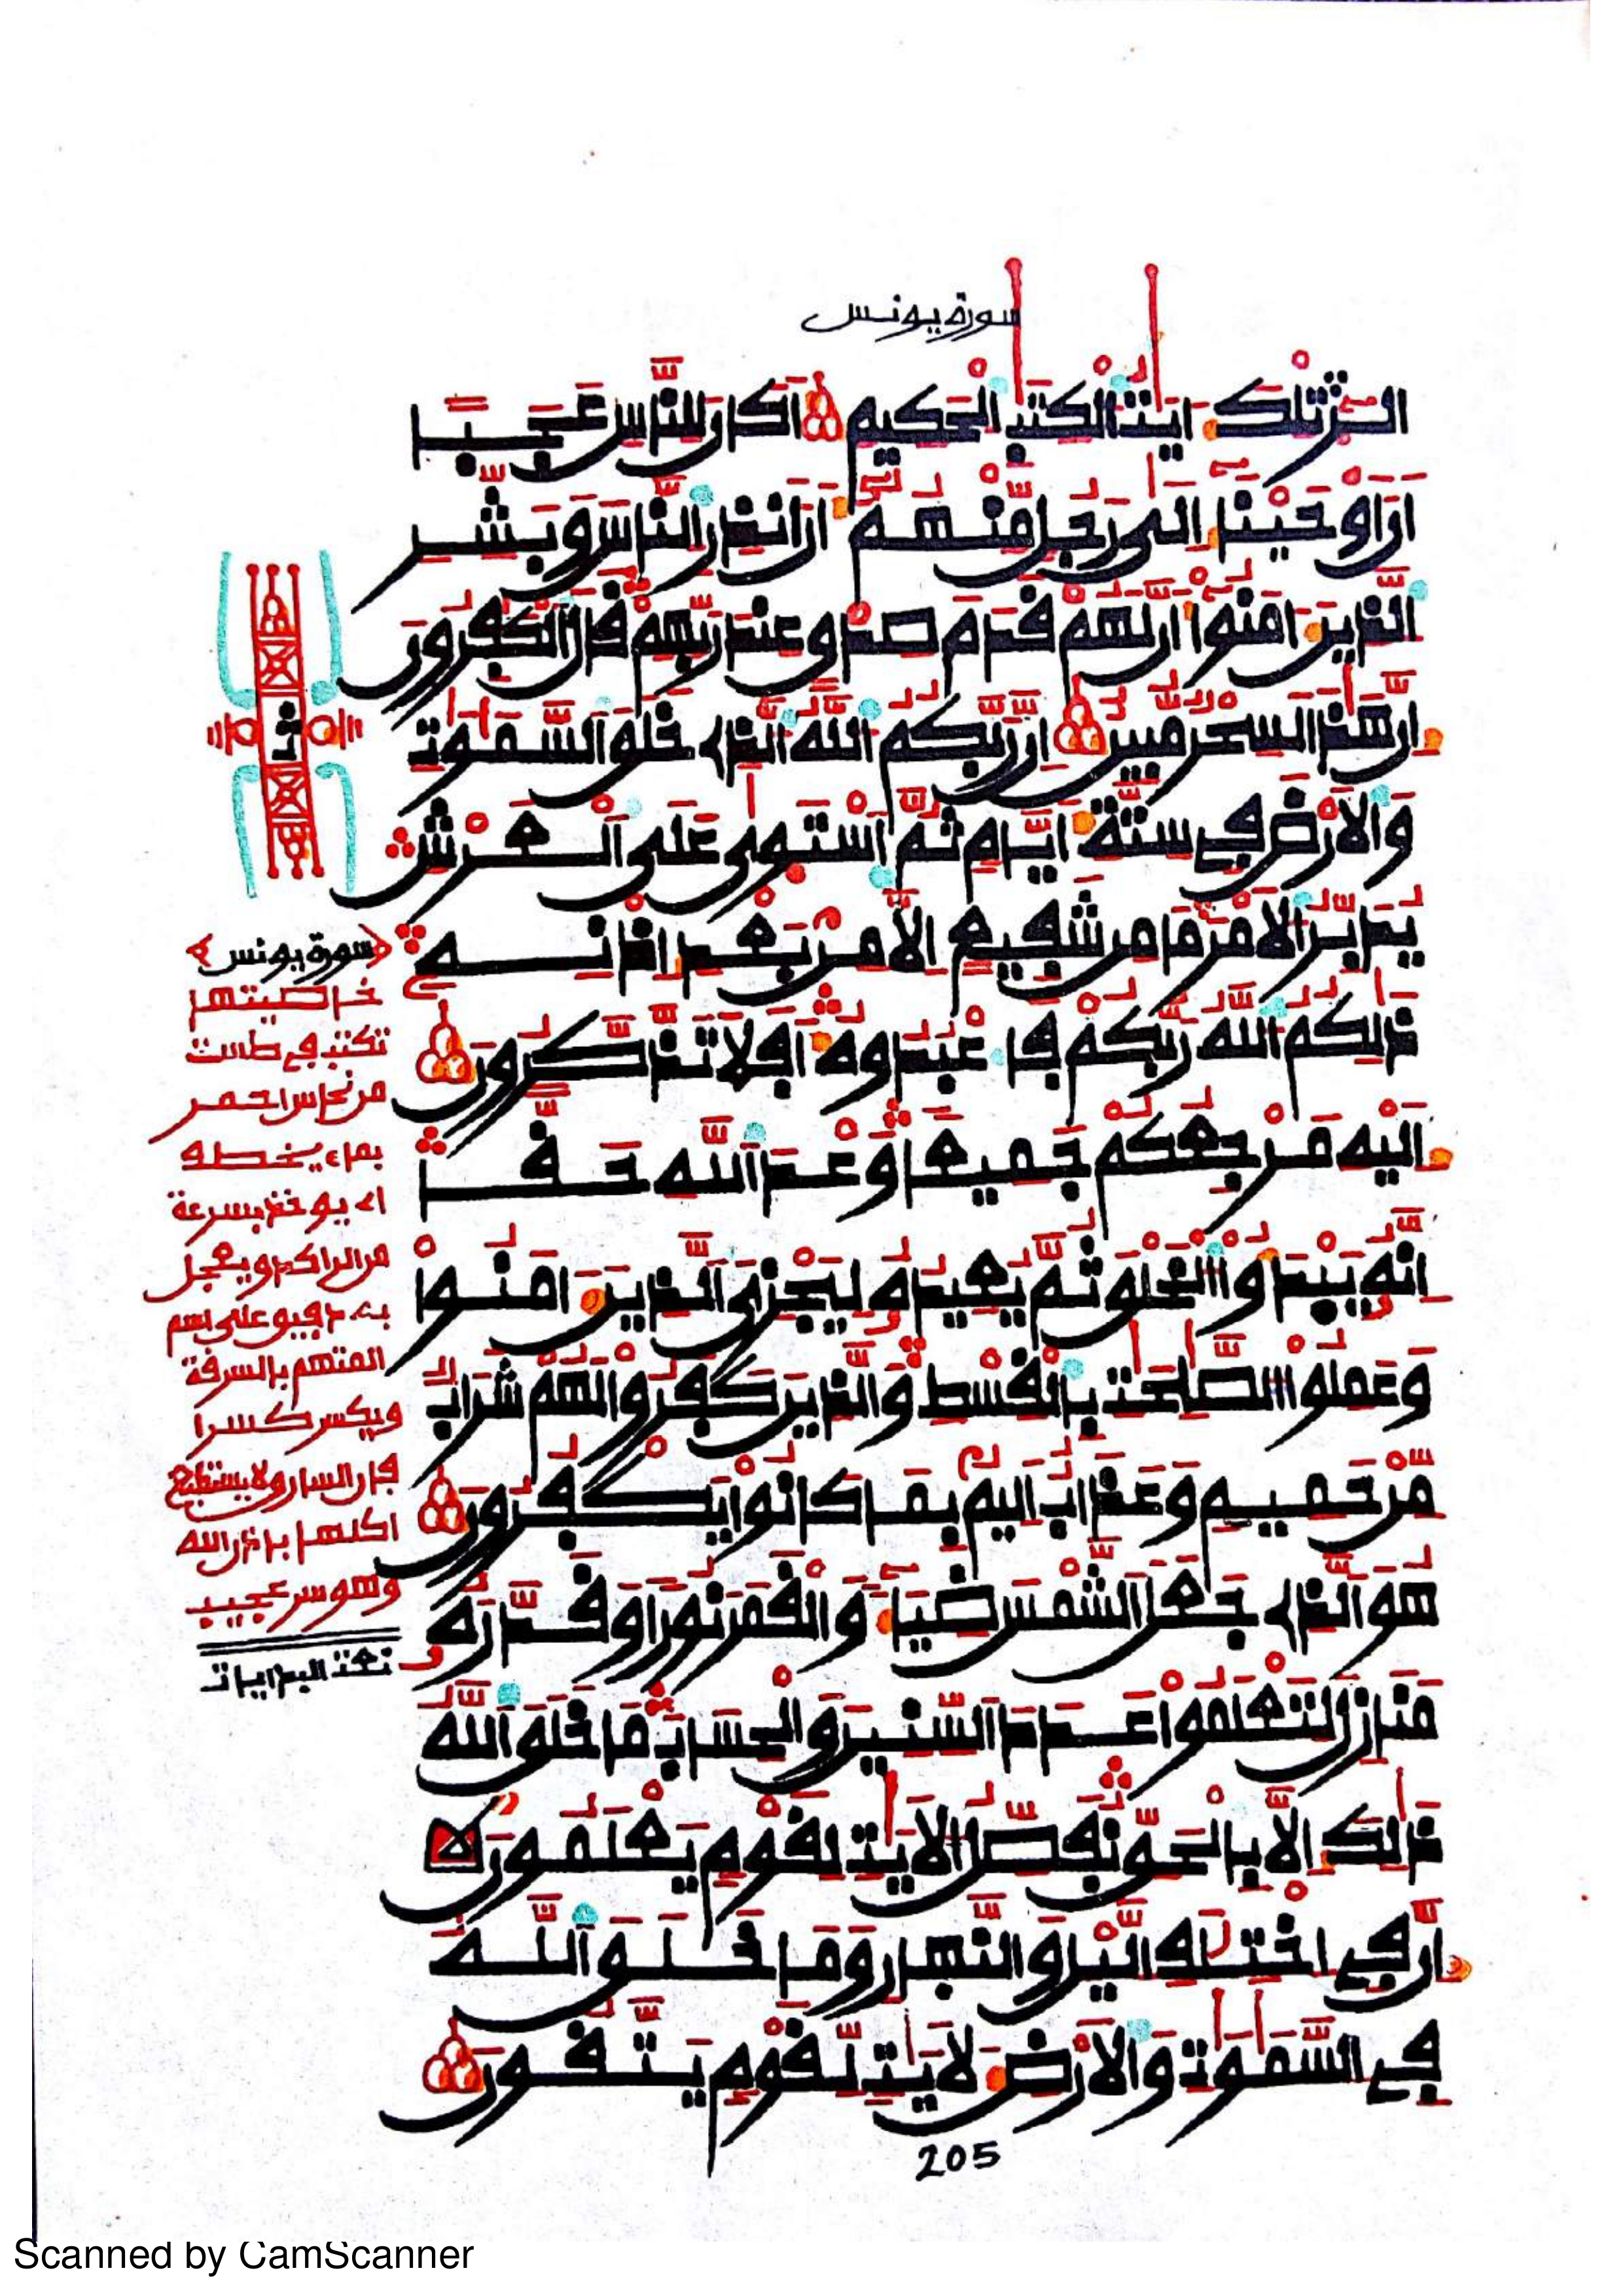 سورة يونس
الر تلك ايت الكتب الحكيم اكان للناس عجبا
ان اوحينا الى رجل منهم ان انذر الناس وبشر
الذين امنوا ان لهم قدم صدق عند ربهم قال الكفرون
ان هذا لسحر مبين ان ربكم الله الذى خلق السموت
والارض فى ستة ايام ثم استوى على العرش
يدبر الامر ما من شفيع الا من بعد اذنه
ذلكم الله ربكم فاعبدوه افلا تذكرون
اليه مرجعكم جميعا وعد الله حقا
انه يبدؤا الخلق ثم يعيده ليجزى الذين امنوا
وعملوا الصلحت بالقسط والذين كفروا لهم شراب
من حميم وعذاب اليم بما كانوا يكفرون
هو الذى جعل الشمس ضياء والقمر نورا وقدره
منازل لتعلموا عدد السنين والحساب ما خلق الله
ذلك الا بالحق نفصل الايت لقوم يعلمون
ان فى اختلف اليل والنهار وما خلق الله
فى السموت والارض لايت لقوم يتقون
205
ث
سورة يونس
خاصيتها
تكتب فى طست
من نحاس احمر
بماء يخطه
اى يوخذ بسرعة
من الراكد ويعجل
به دقيق على اسم
المتهم بالسرقة
ويكسر كسرا
فان السارق لا يستطيع
اكلها باذن الله
وهو سر عجيب
Scanned by CamScanner